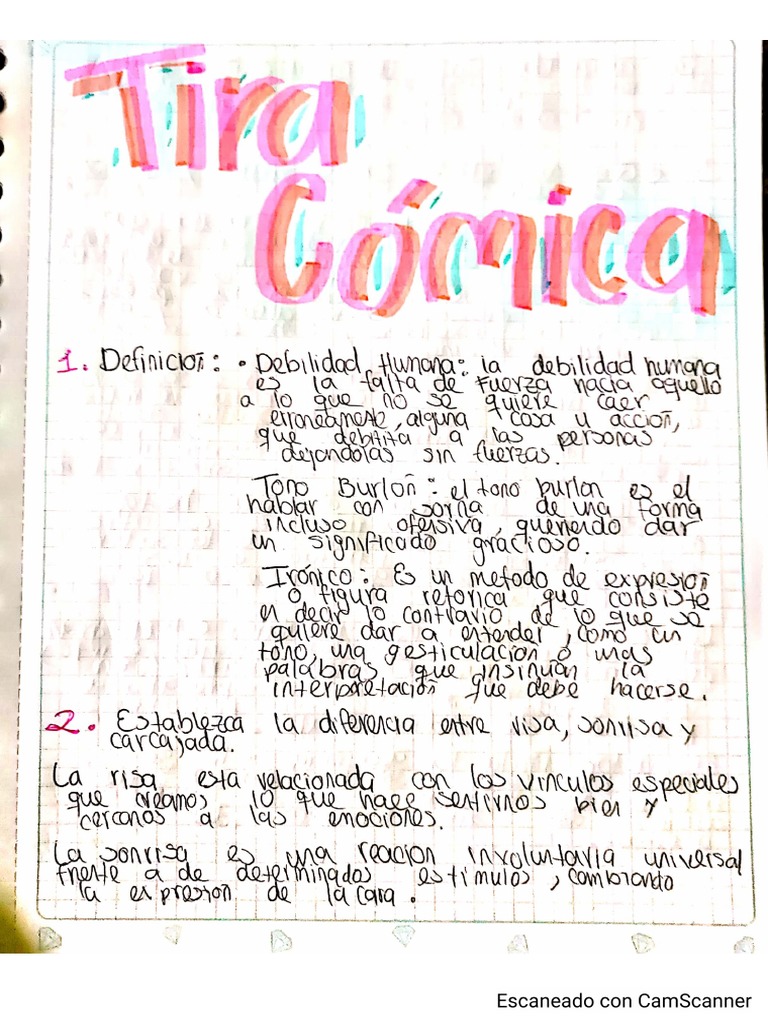 Tira
Cómica
1. Definición: • Debilidad Humana: la debilidad humana
es la falta de fuerza hacia aquello
a lo que no se quiere caer
erroneamente, alguna cosa u acción,
que debitita a las personas
dejandolas sin fuerzas.
Tono Burlón: el tono burlon es el
hablar con sorna de una forma
incluso ofensiva, queriendo dar
un significado gracioso.
Irónico: Es un metodo de expresión
o figura retorica que consiste
en decir lo contrario de lo que se
quiere dar a entender, como un
tono, una gesticulación o unas
palabras que insinuan la
interpretación que debe hacerse.
2. Establezca la diferencia entre risa, sonrisa y
carcajada.
La risa esta relacionada con los vinculos especiales
que creamos, lo que hace sentirnos bien y
cercanos a las emociones.
La sonrisa es una reacion involuntaria universal
frente a de determinados estimulos, cambiando
la expresion de la cara.
Escaneado con CamScanner